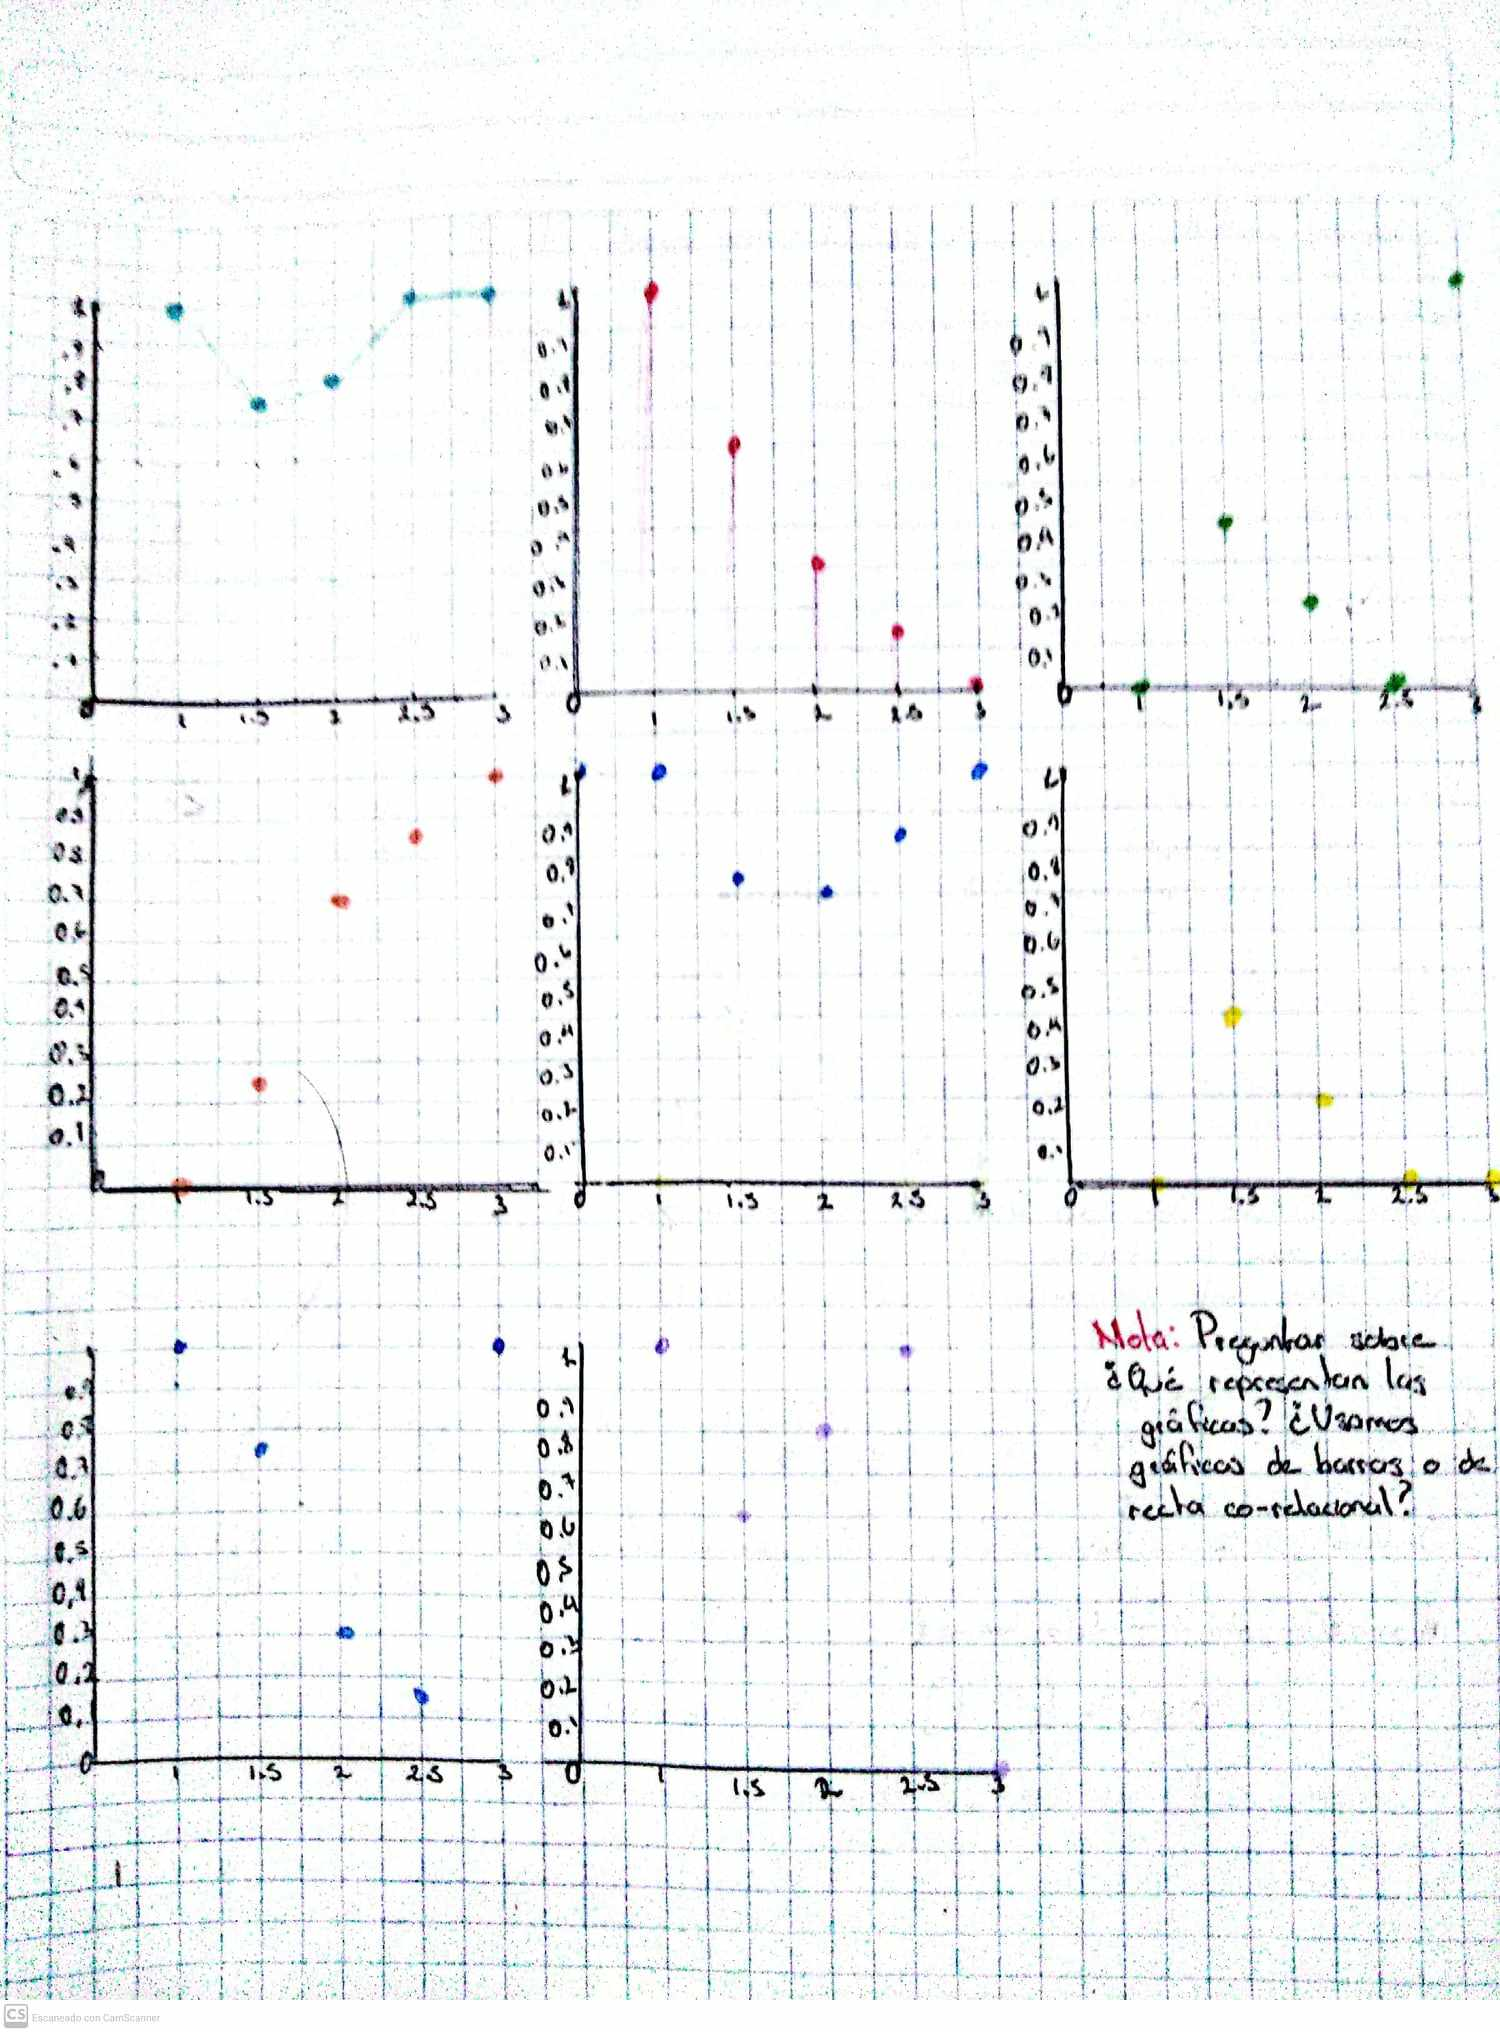 1
.9
.8
.7
.6
.5
.4
.3
.2
.1
0
1 1.5 2 2.5 3
1
0.9
0.8
0.7
0.6
0.5
0.4
0.3
0.2
0.1
0
1 1.5 2 2.5 3
1
0.9
0.8
0.7
0.6
0.5
0.4
0.3
0.2
0.1
0
1 1.5 2 2.5 3
1
0.9
0.8
0.7
0.6
0.5
0.4
0.3
0.2
0.1
0
1 1.5 2 2.5 3
1
0.9
0.8
0.7
0.6
0.5
0.4
0.3
0.2
0.1
0
1 1.5 2 2.5 3
1
0.9
0.8
0.7
0.6
0.5
0.4
0.3
0.2
0.1
0
1 1.5 2 2.5 3
0.9
0.8
0.7
0.6
0.5
0.4
0.3
0.2
0.1
0
1 1.5 2 2.5 3
1
0.9
0.8
0.7
0.6
0.5
0.4
0.3
0.2
0.1
0
1 1.5 2 2.5 3
Nota: Preguntar sobre
¿Qué representan las
gráficas? ¿Usamos
gráficas de barras o de
recta co-relacional?
CS Escaneado con CamScanner